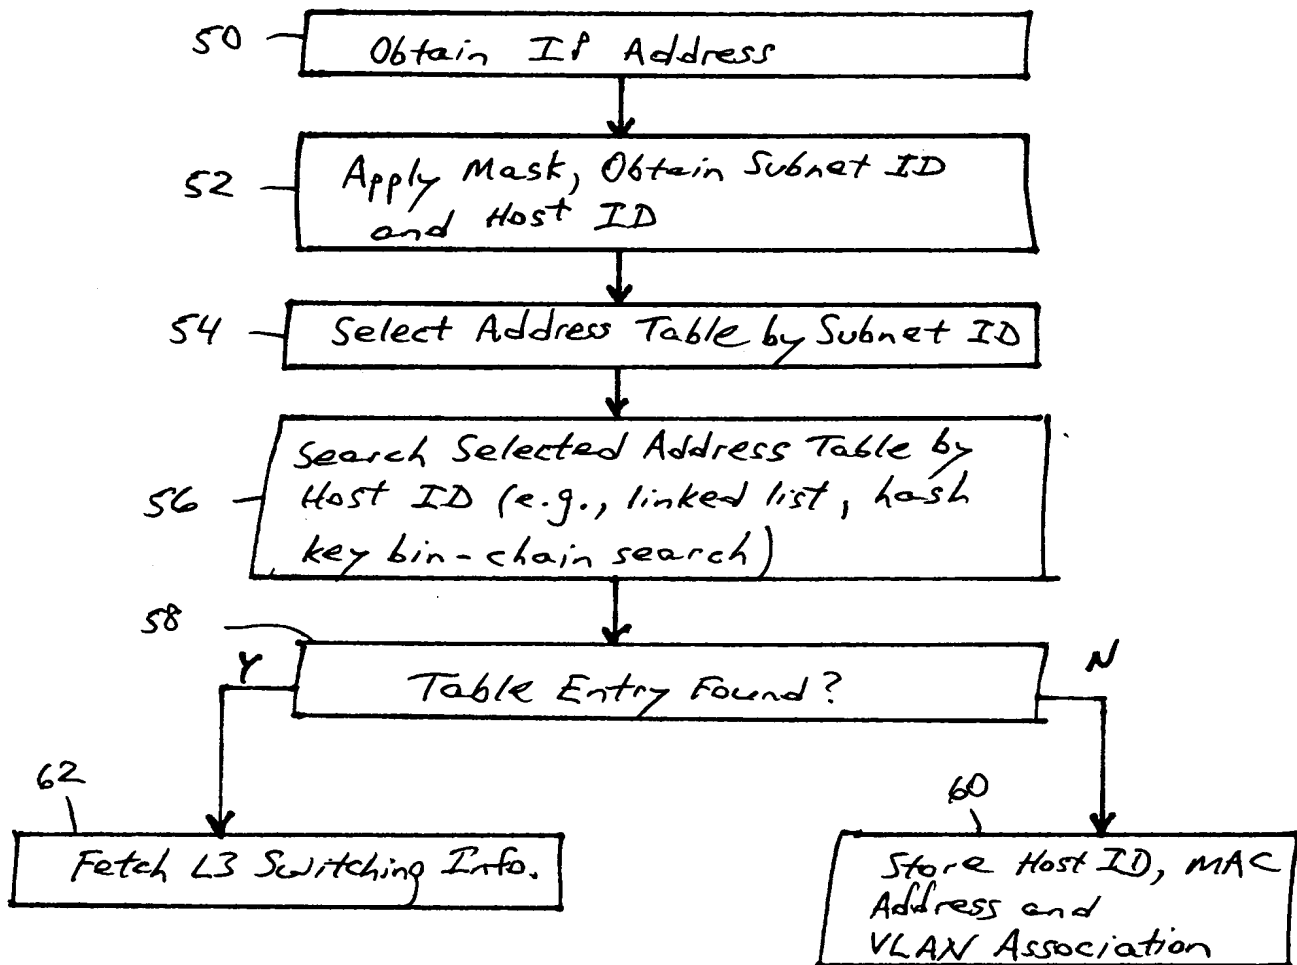 50
Obtain IP Address
52
Apply Mask, Obtain Subnet ID
and Host ID
54
Select Address Table by Subnet ID
56
Search Selected Address Table by
Host ID (e.g., linked list, hash
key bin-chain search)
58
Y
N
Table Entry Found?
62
60
Fetch L3 Switching Info.
Store Host ID, MAC
Address and
VLAN Association